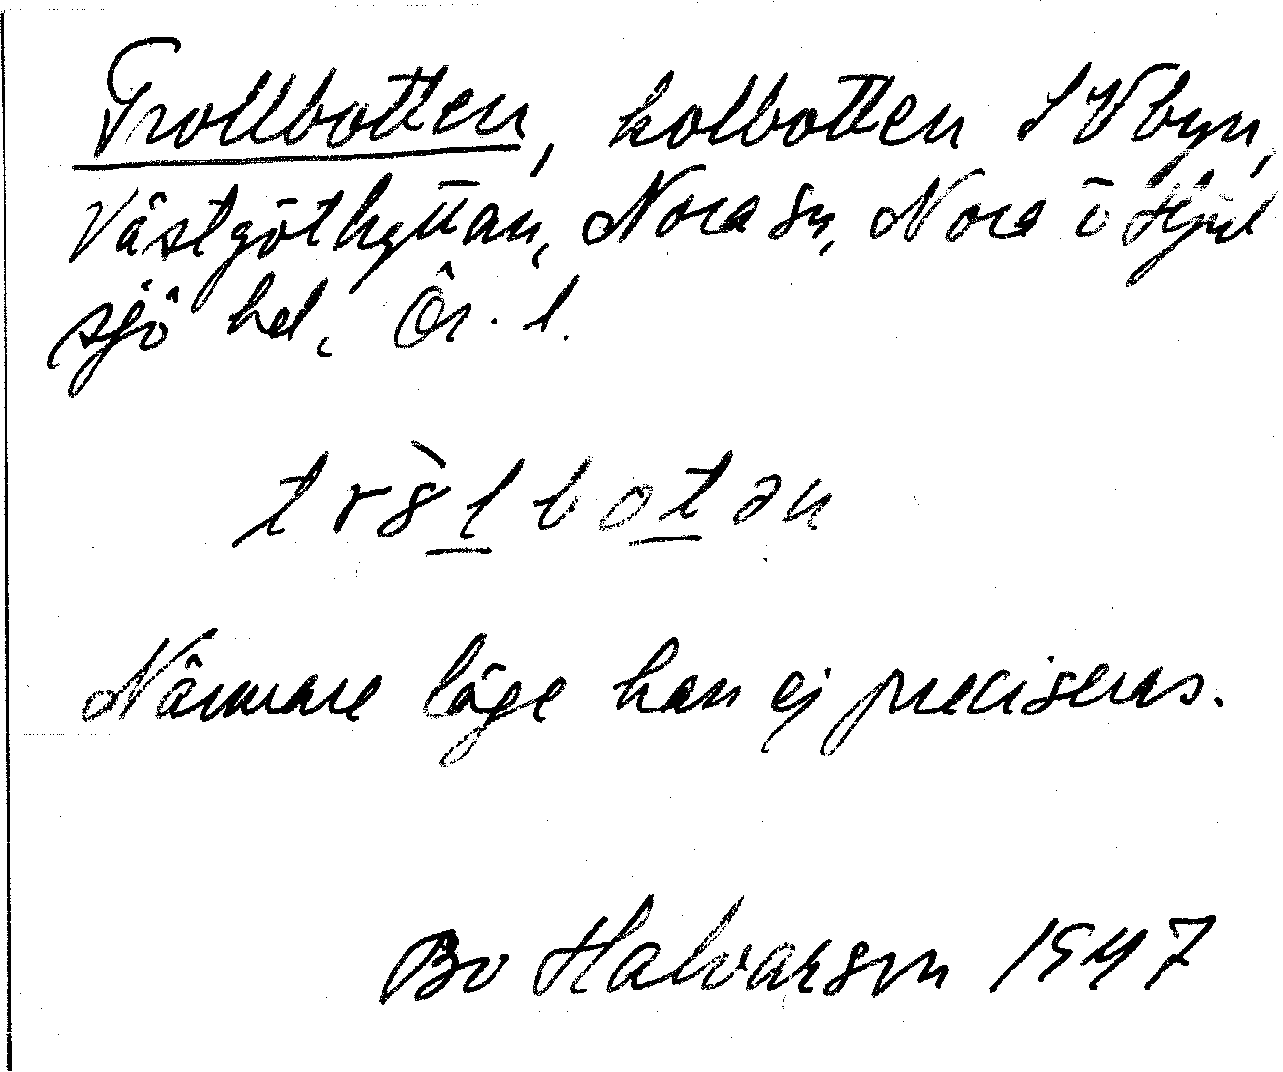 Trollbotten, kolbotten S Vbyn,
Västgöthyttan, Nora sn, Nora o Hjul
sjö hd, Ör. l.
Närmare läge kan ej preciseras.
Bo Halvarson 1947